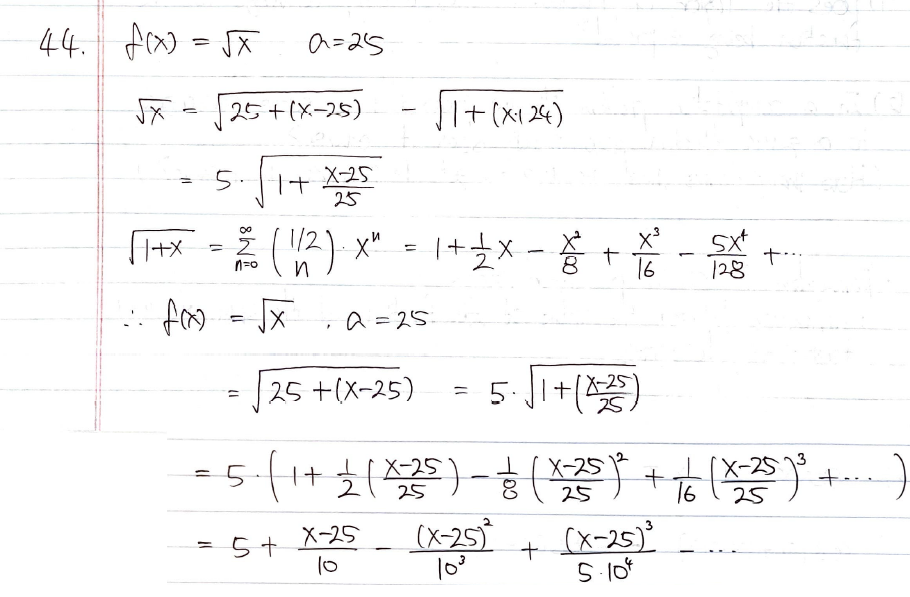 44. f(x) = √x  a=25
√x = √(25+(x-25)) - √(1+(x·1 24))
= 5·√(1+ (x-25)/25)
√(1+x) = Σ_{n=0}^{∞} (1/2 n)·x^n = 1+ 1/2 x - x²/8 + x³/16 - 5x⁴/128 + ...
∴ f(x) = √x , a=25
= √(25+(x-25)) = 5·√(1+((x-25)/25))
= 5·(1+ 1/2 ((x-25)/25) - 1/8 ((x-25)/25)² + 1/16 ((x-25)/25)³ + ... )
= 5 + (x-25)/10 - (x-25)²/10³ + (x-25)³/(5·10⁴) - ...